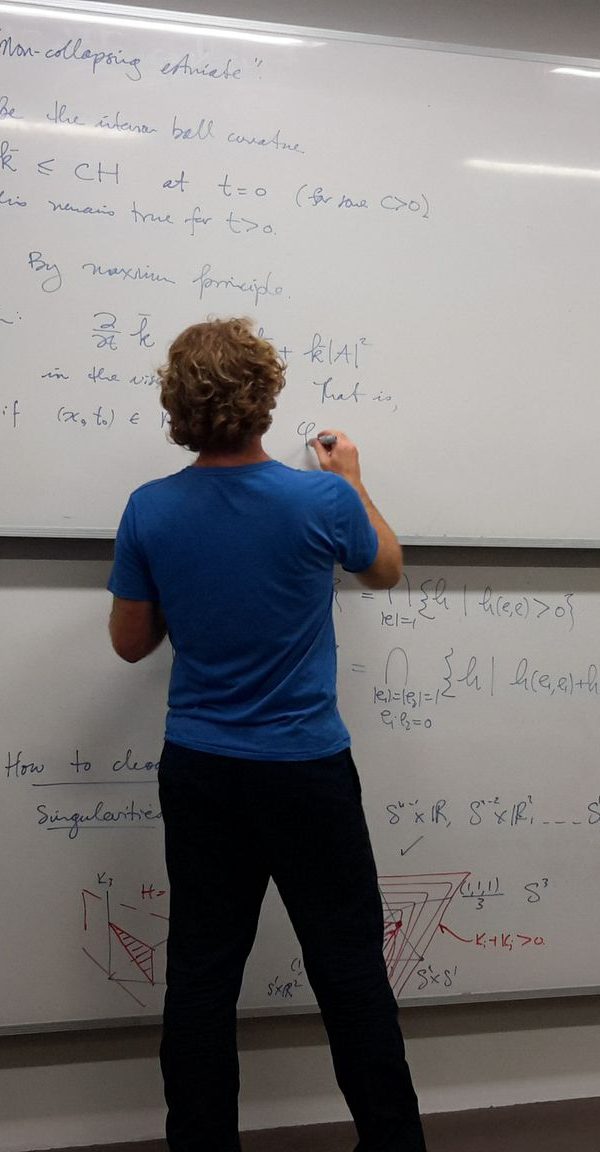 "Non-collapsing estimate".
be the interior ball curvature
k̄ ≤ CH at t=0 (for some C>0)
this remains true for t>0.
By maximum principle.
∂/∂t k̄ + k̄|A|²
in the That is,
if (x₀,t₀) ∈ φ
} = ⋂_{|e|=1} {h | h(e,e)>0}
= ⋂_{|e₁|=|e₂|=1, e₁·e₂=0} {h | h(e₁,e₁)+h
How to
Singularities
Sⁿ⁻¹×ℝ, Sⁿ⁻²×ℝ², --- S
✓
K₃ H= (1,1,1)/3 S³
Kᵢ+Kⱼ>0
S¹×ℝ² S²×S¹